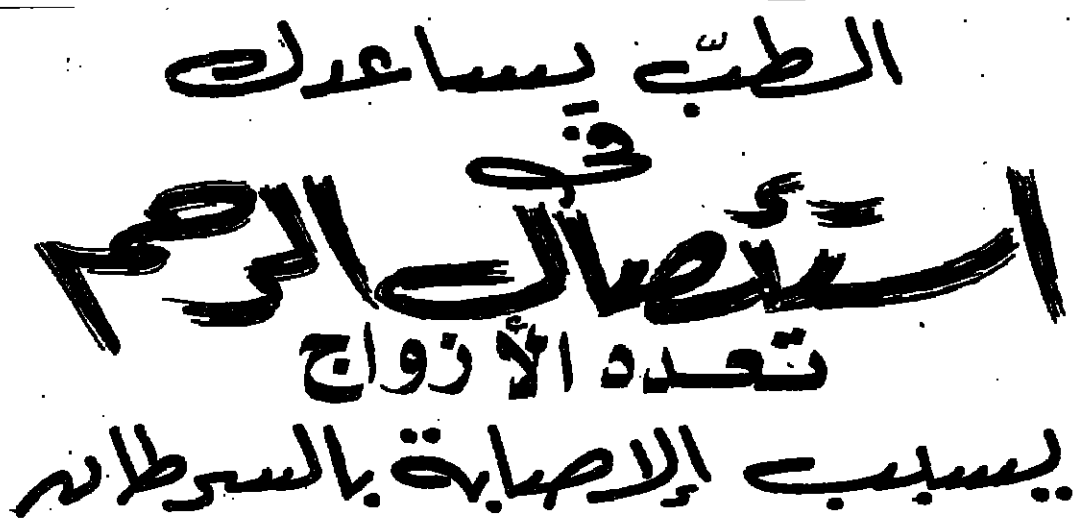 الطبّ يساعدك
في
استئصال الرحم
تعدد الأزواج
يسبب الإصابة بالسرطان